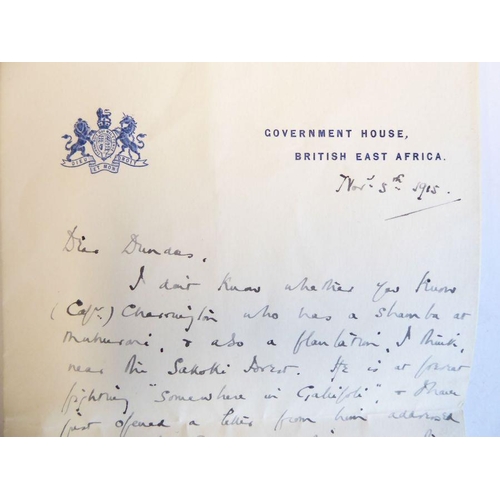 DIEU ET MON DROIT
GOVERNMENT HOUSE,
BRITISH EAST AFRICA.
Novr. 5th 1915.
Dear Dundas,
I don't know whether you know
(Capt.) Charrington who has a shamba at
, & also a plantation, I think,
near the Sakoki Forest. He is at present
fighting "somewhere in Gallipoli", & I have
just opened a letter from him addressed